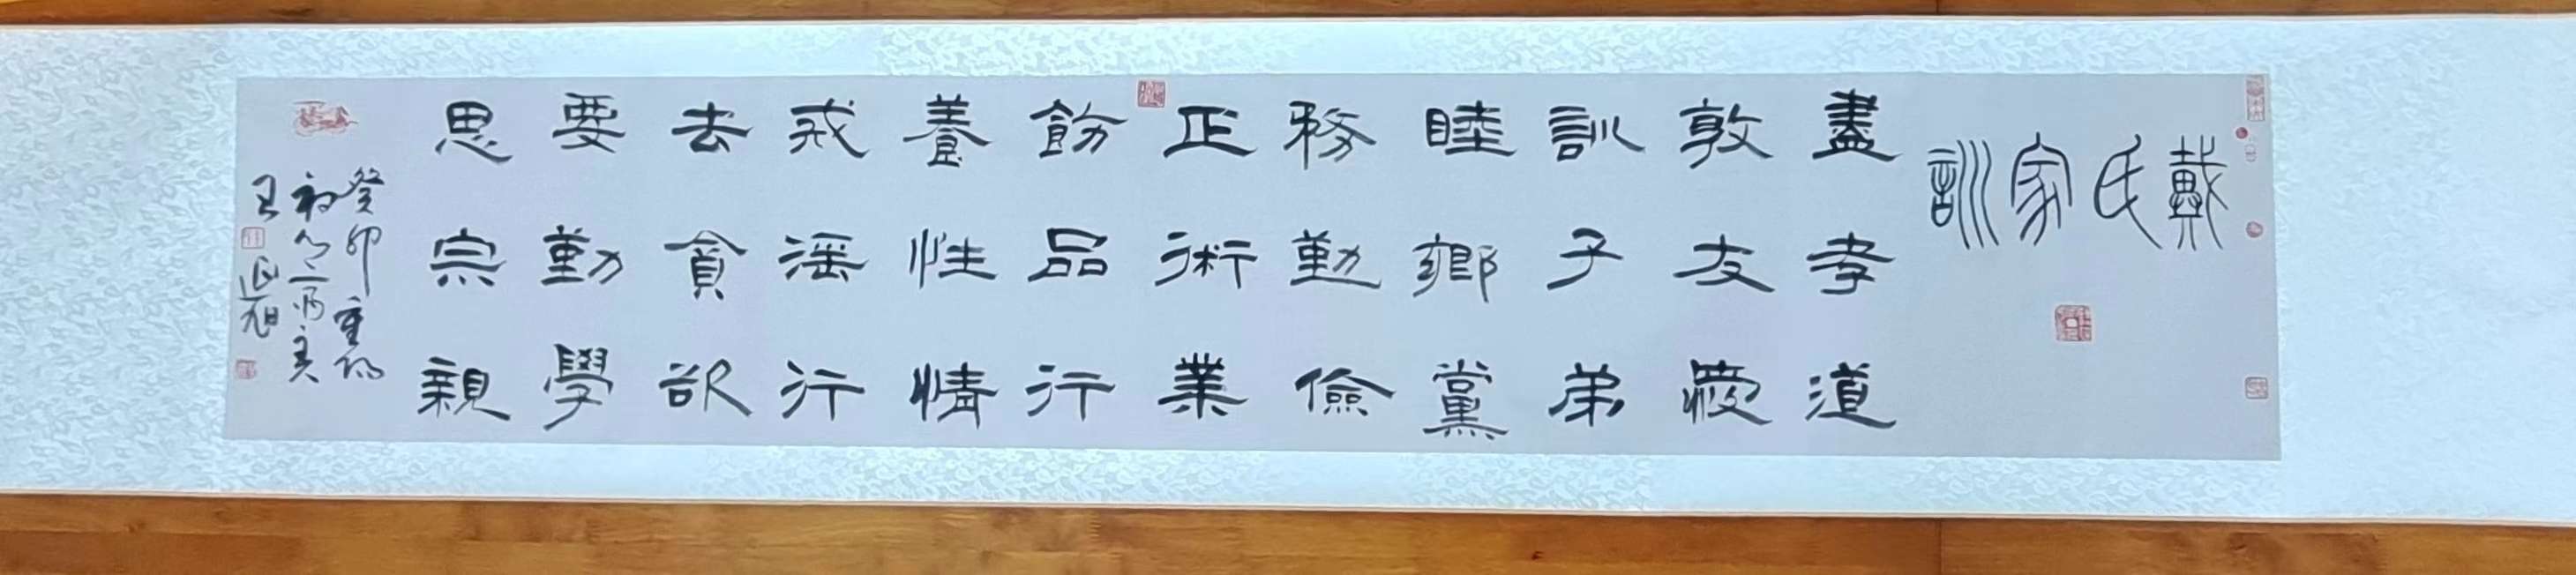 戴氏家訓
盡孝道
敦友愛
訓子弟
睦鄉黨
務勤儉
正術業
飭品行
養性情
戒淫行
去貪欲
要勤學
思宗親
癸卯重陽